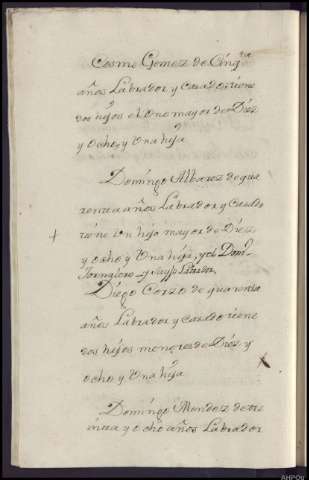 Cosme Gomez de Cinqta
años Labrador y casado tiene
dos hijos el uno mayor de Diez
y ocho, y una hija
Domingo Albarez de qua
renta años Labrador y casado
tiene un hijo mayor de Diez
y ocho y una hija, y el Domo
Jornalero y
Diego Corzo de quarenta
años Labrador y casado tiene
dos hijos menores de Diez y
ocho y una hija
Domingo Mendez de tre
inta y ocho años Labrador
AHPOu